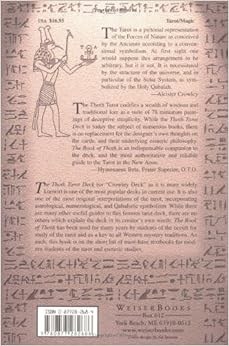 USA $16.95 Tarot/Magic
The Tarot is a pictorial representation
of the Forces of Nature as conceived
by the Ancients according to a conven-
tional symbolism. At first sight one
would suppose this arrangement to be
arbitrary, but it is not. It is necessitated
by the structure of the universe, and in
particular of the Solar System, as sym-
bolized by the Holy Qabalah.
—Aleister Crowley
The Thoth Tarot codifies a wealth of wisdom and
traditional lore as a suite of 78 miniature paint-
ings of deceptive simplicity. While the Thoth Tarot
Deck is today the subject of numerous books, there
is no replacement for the designer's own thoughts
on the cards, and their underlying esoteric philosophy.
The Book of Thoth is an indispensable companion to
the deck, and the most authoritative and reliable
guide to the Tarot in the New Aeon.
—Hymenaeus Beta, Frater Superior, O.T.O.
The Thoth Tarot Deck or "Crowley Deck" as it is more widely
known is one of the most popular decks in current use. It is also
one of the most original interpretations of the tarot, incorporating
astrological, numerological, and Qabalistic symbolism. While there
are many other useful guides to this famous tarot deck, there are no
others which explain the deck in its creator's own words. The Book
of Thoth has been used for many years by students of the occult for
study of the tarot and as a key to all Western mystery traditions. As
such, this book is on the short list of must-have textbooks for mod-
ern students of the tarot and esoteric studies.
ISBN 0-87728-268-4
WEISERBOOKS
Box 612
York Beach, ME 03910-0612
www.weiserbooks.com